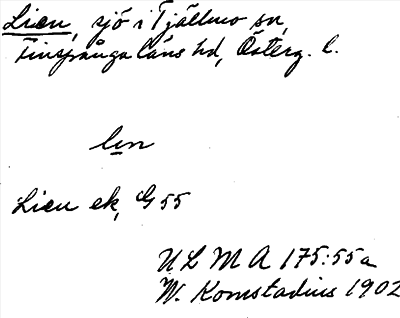 Lien, sjö i Tjällmo sn,
Finspånga läns hd, Österg. l.
len
Lien ek, G 55
ULMA 175:55a
W. Komstadius 1902